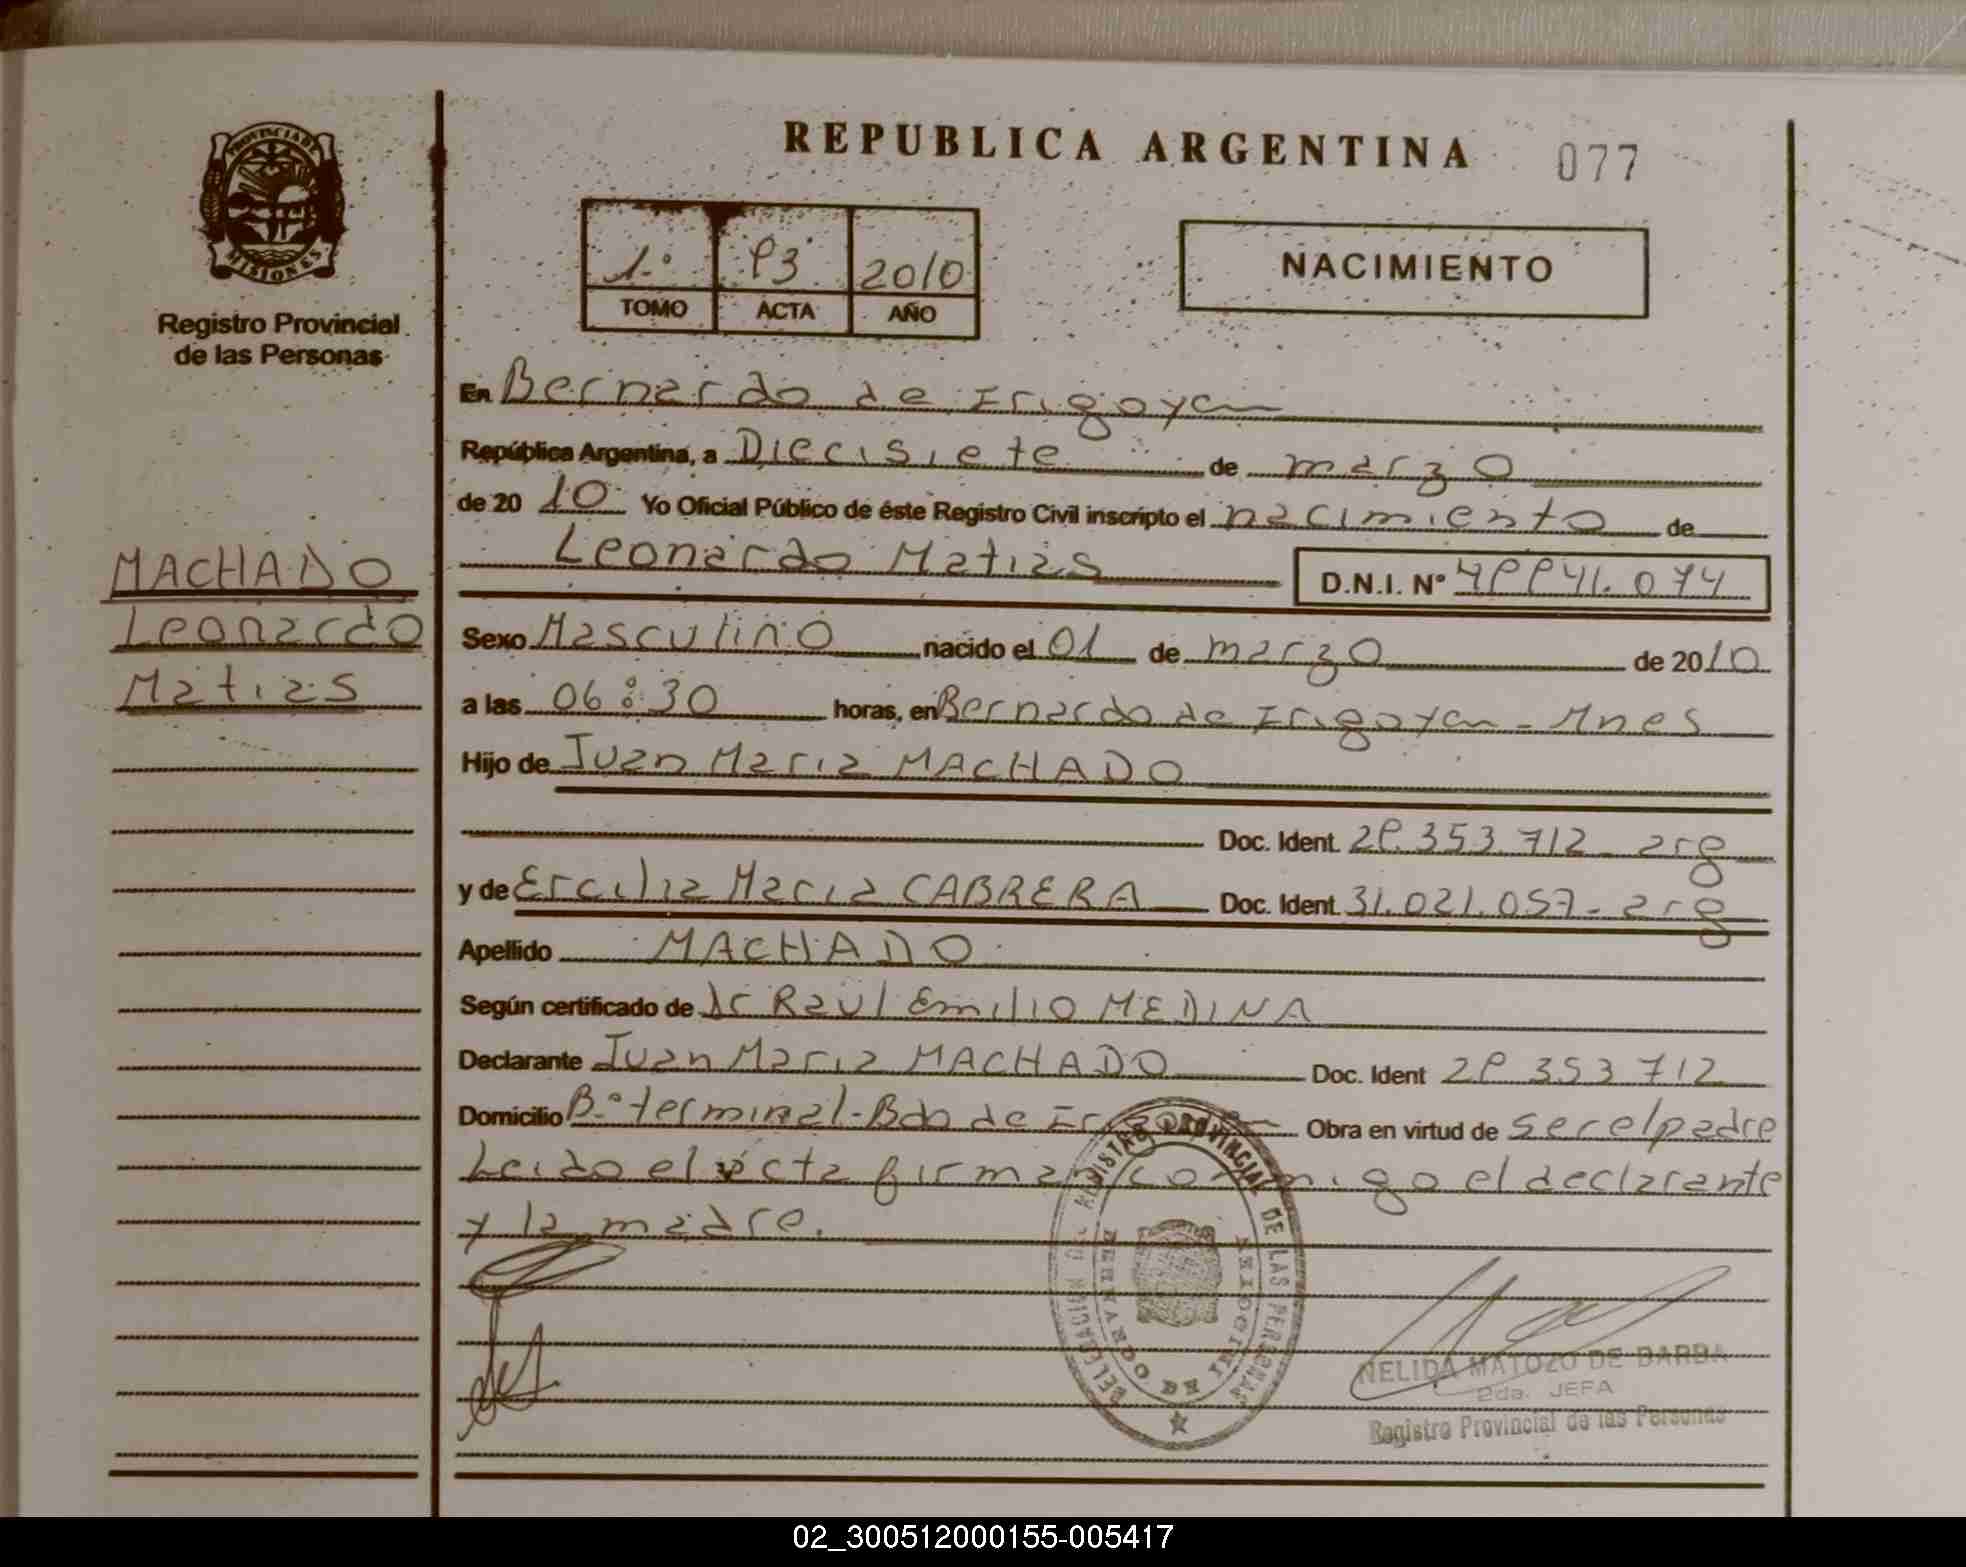 PROVINCIA DE
MISIONES
Registro Provincial
de las Personas
REPUBLICA ARGENTINA 077
1º 93 2010
TOMO ACTA AÑO
NACIMIENTO
MACHADO
Leonardo
Matias
En Bernardo de Irigoyen
República Argentina, a Diecisiete de marzo
de 20 10 Yo Oficial Público de éste Registro Civil inscripto el nacimiento de
Leonardo Matias D.N.I. Nº 49941.074
Sexo Masculino nacido el 01 de marzo de 2010
a las 06:30 horas, en Bernardo de Irigoyen - Mnes
Hijo de Juan Maria MACHADO
Doc. Ident. 29.353.712 - arg
y de Ercilia Maria CABRERA Doc. Ident. 31.021.057 - arg
Apellido MACHADO
Según certificado de Dr Raul Emilio MEDINA
Declarante Juan Maria MACHADO Doc. Ident 29 353 712
Domicilio Bº terminal - Bdo de Irigoyen Obra en virtud de ser el padre
Leido el acta firman conmigo el declarante
y la madre.
DELEGACION DEL REGISTRO PROVINCIAL DE LAS PERSONAS
BERNARDO DE IRIGOYEN
NELIDA MATOZO DE BARBA
2da. JEFA
Registro Provincial de las Personas
02_300512000155-005417